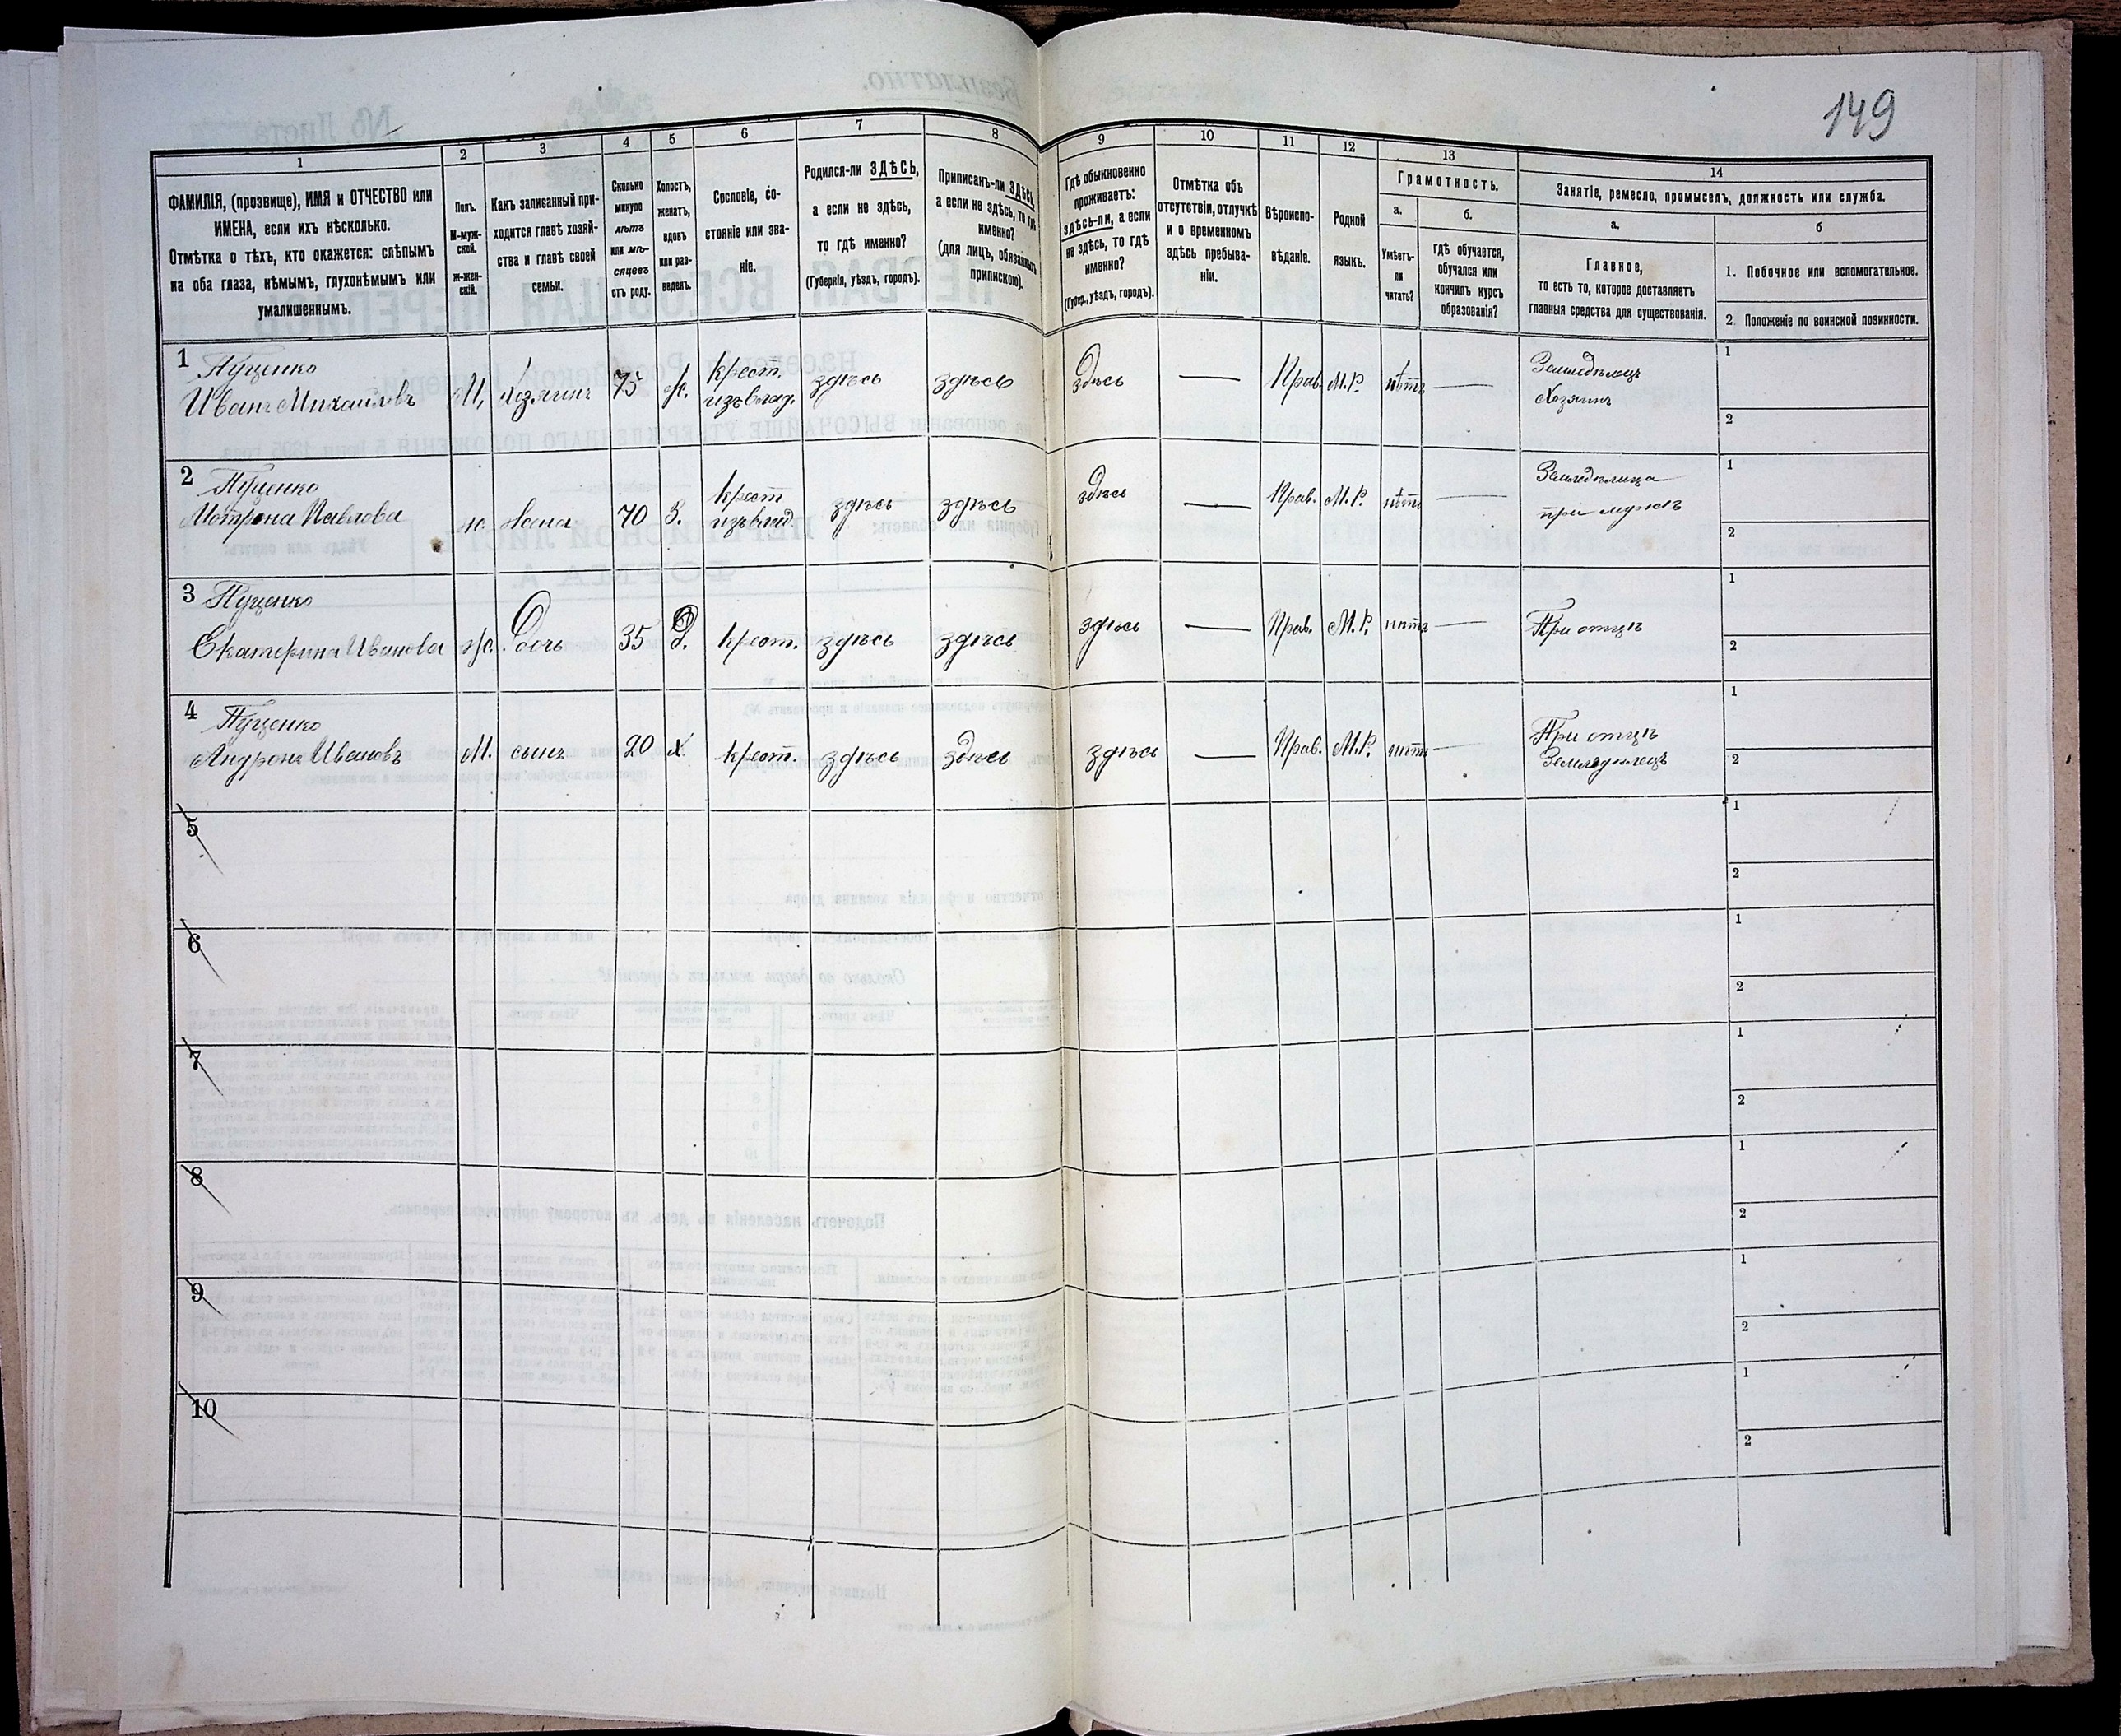 149
1
2
3
4
5
6
7
8
9
10
11
12
13
14
ФАМИЛІЯ, (прозвище), ИМЯ и ОТЧЕСТВО или
ИМЕНА, если ихъ нѣсколько.
Отмѣтка о тѣхъ, кто окажется: слѣпымъ
на оба глаза, нѣмымъ, глухонѣмымъ или
умалишеннымъ.
Полъ.
М-муж-
ской.
ж-жен-
скій.
Какъ записанный при-
ходится главѣ хозяй-
ства и главѣ своей
семьи.
Сколько
минуло
лѣтъ
или мѣ-
сяцевъ
отъ роду.
Холостъ,
женатъ,
вдовъ
или раз-
веденъ.
Сословіе, со-
стояніе или зва-
ніе.
Родился-ли ЗДѢСЬ,
а если не здѣсь,
то гдѣ именно?
(Губернія, уѣздъ, городъ).
Приписанъ-ли ЗДѢСЬ,
а если не здѣсь, то гдѣ
именно?
(для лицъ, обязанныхъ
припискою).
Гдѣ обыкновенно
проживаетъ:
здѣсь-ли, а если
не здѣсь, то гдѣ
именно?
(Губер., уѣздъ, городъ).
Отмѣтка объ
отсутствіи, отлучкѣ
и о временномъ
здѣсь пребыва-
ніи.
Вѣроиспо-
вѣданіе.
Родной
языкъ.
Грамотность.
а.
Умѣетъ-
ли
читать?
б.
Гдѣ обучается,
обучался или
кончилъ курсъ
образованія?
Занятіе, ремесло, промыселъ, должность или служба.
а.
Главное,
то есть то, которое доставляетъ
главныя средства для существованія.
б
1. Побочное или вспомогательное.
2 Положеніе по воинской повинности.
1 Пуценко
Иванъ Михаиловъ М. Хозяинъ 75 ж. крест. изъ влад. здѣсь здѣсь здѣсь — Прав. М.Р. нѣтъ — Земледѣлецъ
Хозяинъ
1
2
2 Пуценко
Мотрона Павлова ж. Жена 70 З. крест изъ влад. здѣсь здѣсь здѣсь — Прав. М.Р. нѣтъ — Земледѣлица
при мужѣ
1
2
3 Пуценко
Екатерина Иванова ж. Дочь 35 Д. крест. здѣсь здѣсь здѣсь — Прав. М.Р. нѣтъ — При отцѣ
1
2
4 Пуценко
Андронъ Ивановъ М. сынъ 20 х. крест. здѣсь здѣсь здѣсь — Прав. М.Р. нѣтъ — При отцѣ
Земледѣлецъ
1
2
5
1
2
6
1
2
7
1
2
8
1
2
9
1
2
10
1
2